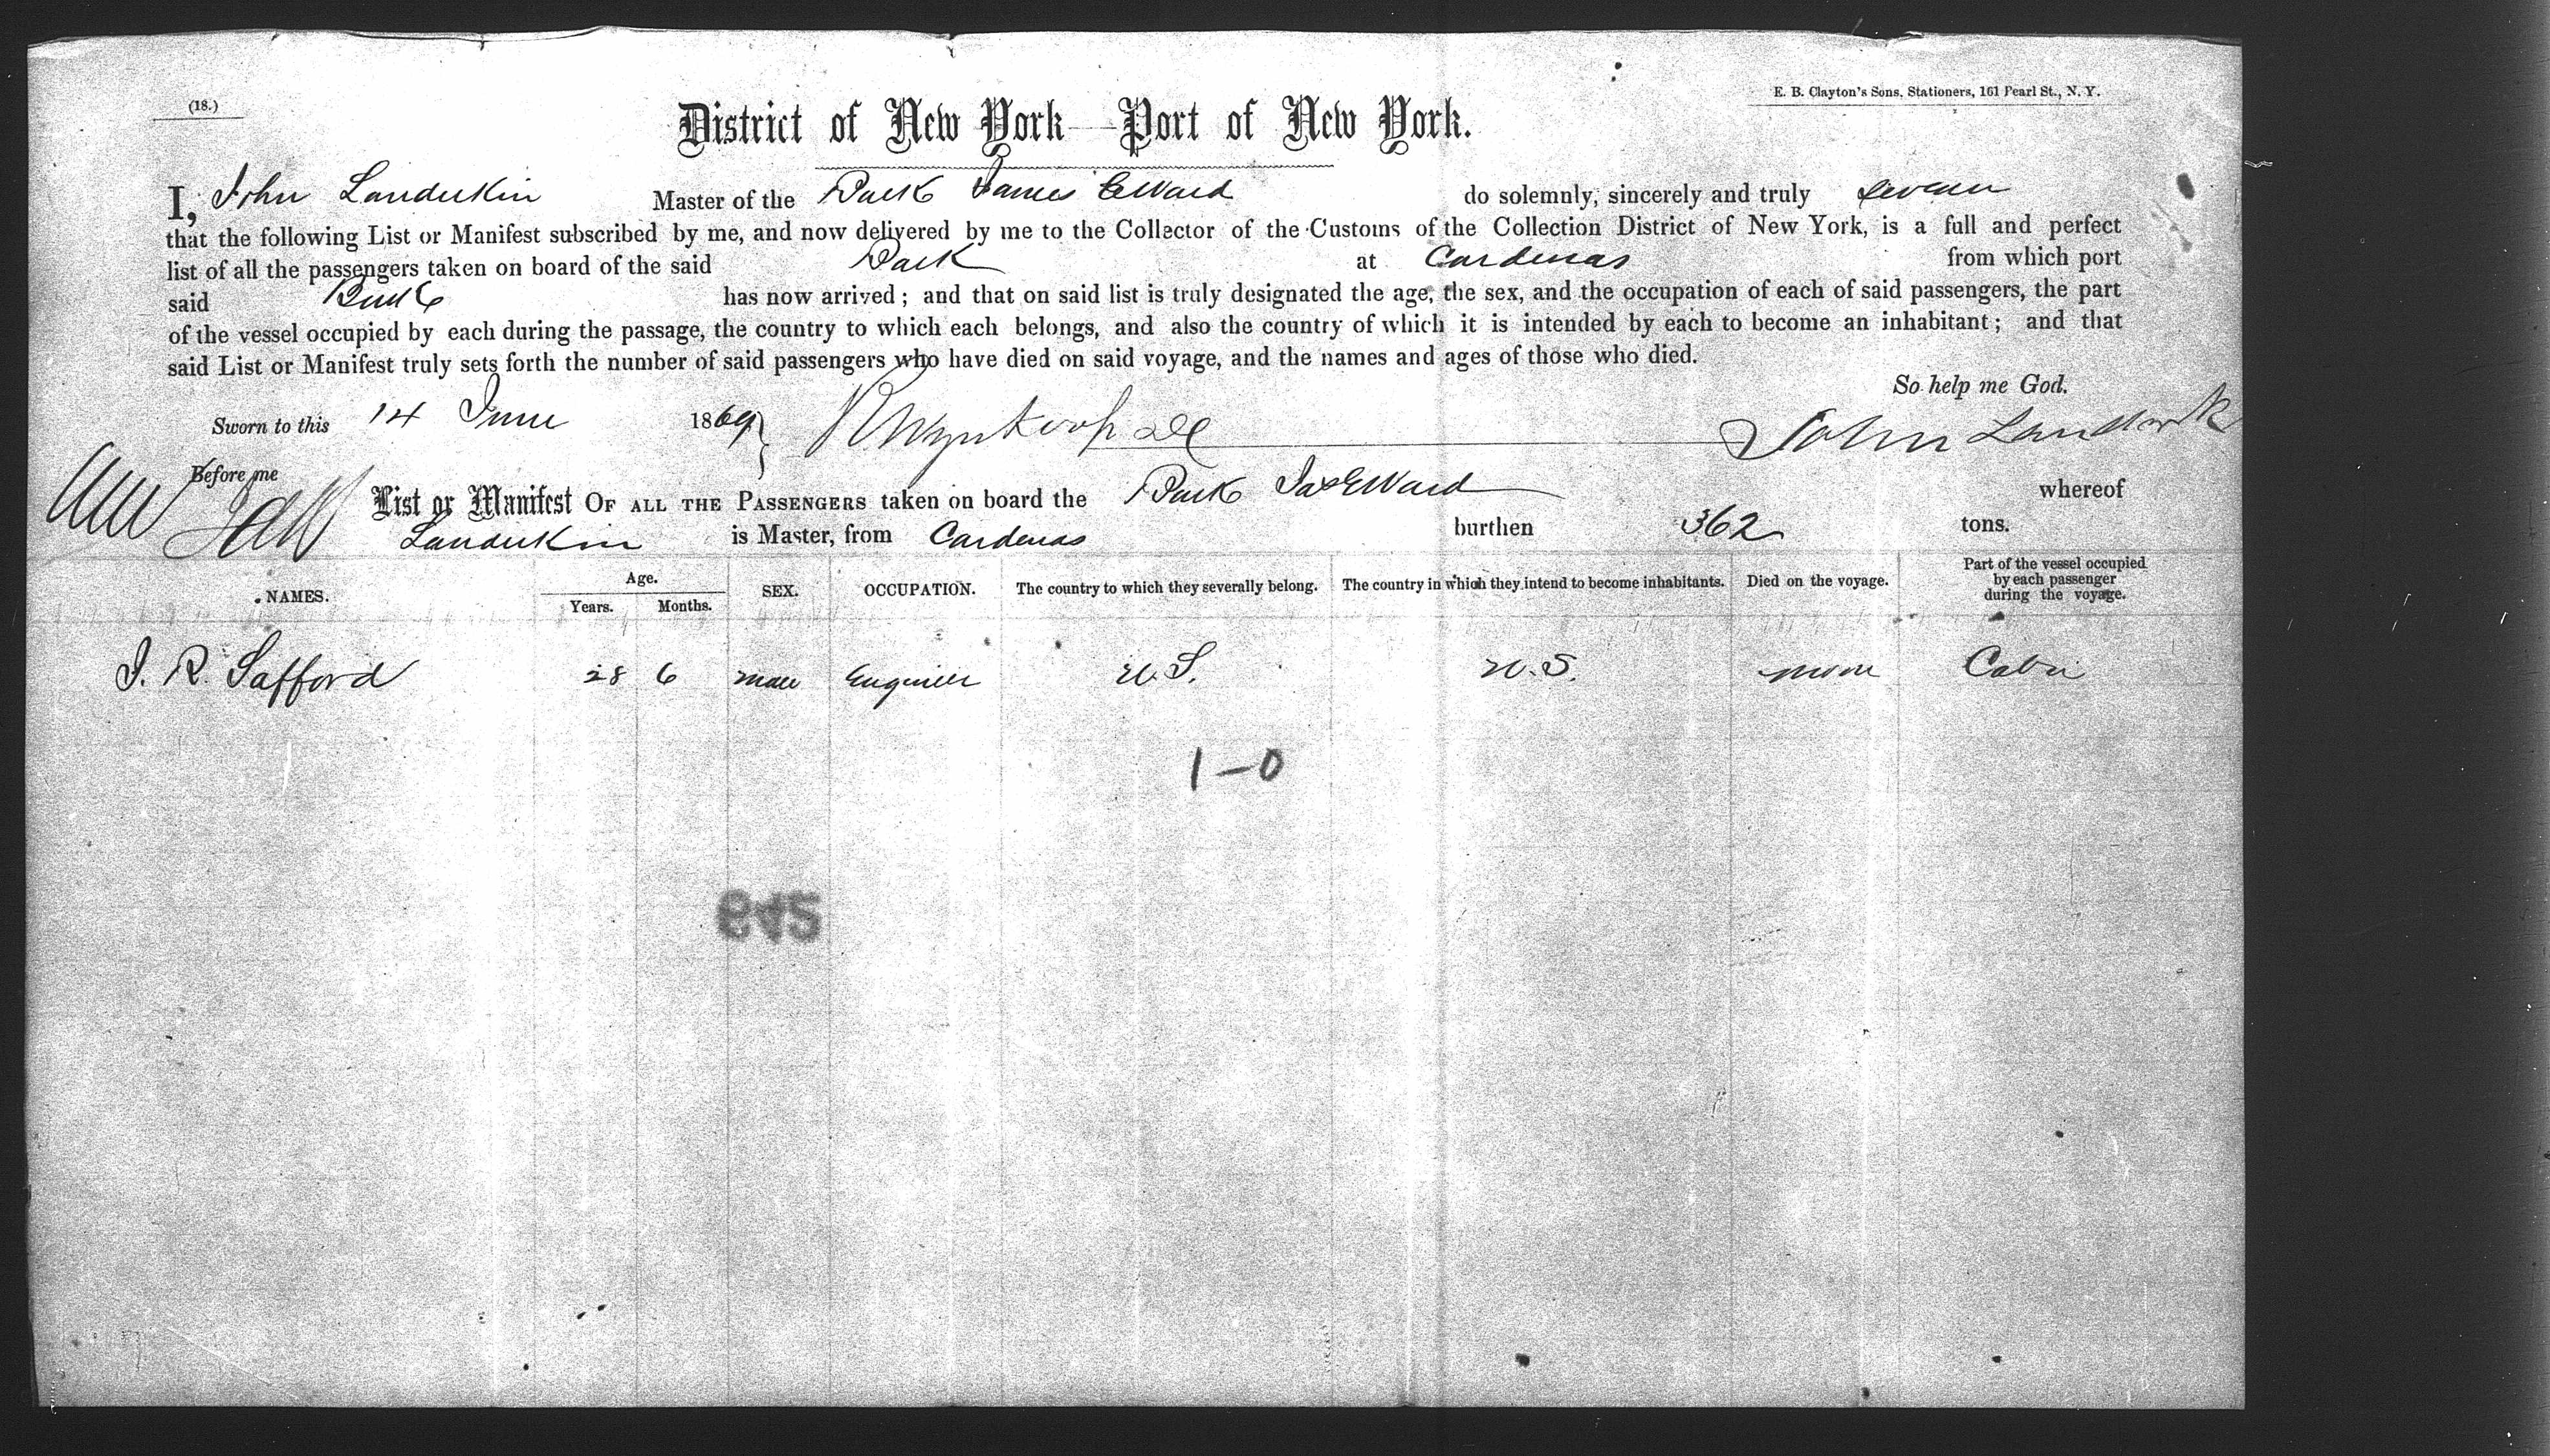 (18.)
E. B. Clayton's Sons, Stationers, 161 Pearl St., N. Y.
District of New York—Port of New York.
I, John Landerkin Master of the Bark James E Ward do solemnly, sincerely and truly swear
that the following List or Manifest subscribed by me, and now delivered by me to the Collector of the Customs of the Collection District of New York, is a full and perfect
list of all the passengers taken on board of the said Bark at Cardenas from which port
said Bark has now arrived; and that on said list is truly designated the age, the sex, and the occupation of each of said passengers, the part
of the vessel occupied by each during the passage, the country to which each belongs, and also the country of which it is intended by each to become an inhabitant; and that
said List or Manifest truly sets forth the number of said passengers who have died on said voyage, and the names and ages of those who died.
So help me God.
Sworn to this 14 June 1869 John
Before me
List or Manifest OF ALL THE PASSENGERS taken on board the Bark Jas E Ward whereof
Landerkin is Master, from Cardenas burthen 362 tons.
NAMES. Age. Years. Months. SEX. OCCUPATION. The country to which they severally belong. The country in which they intend to become inhabitants. Died on the voyage. Part of the vessel occupied by each passenger during the voyage.
J. R. Safford 28 6 male Engineer U.S. U.S. none Cabin
1-0